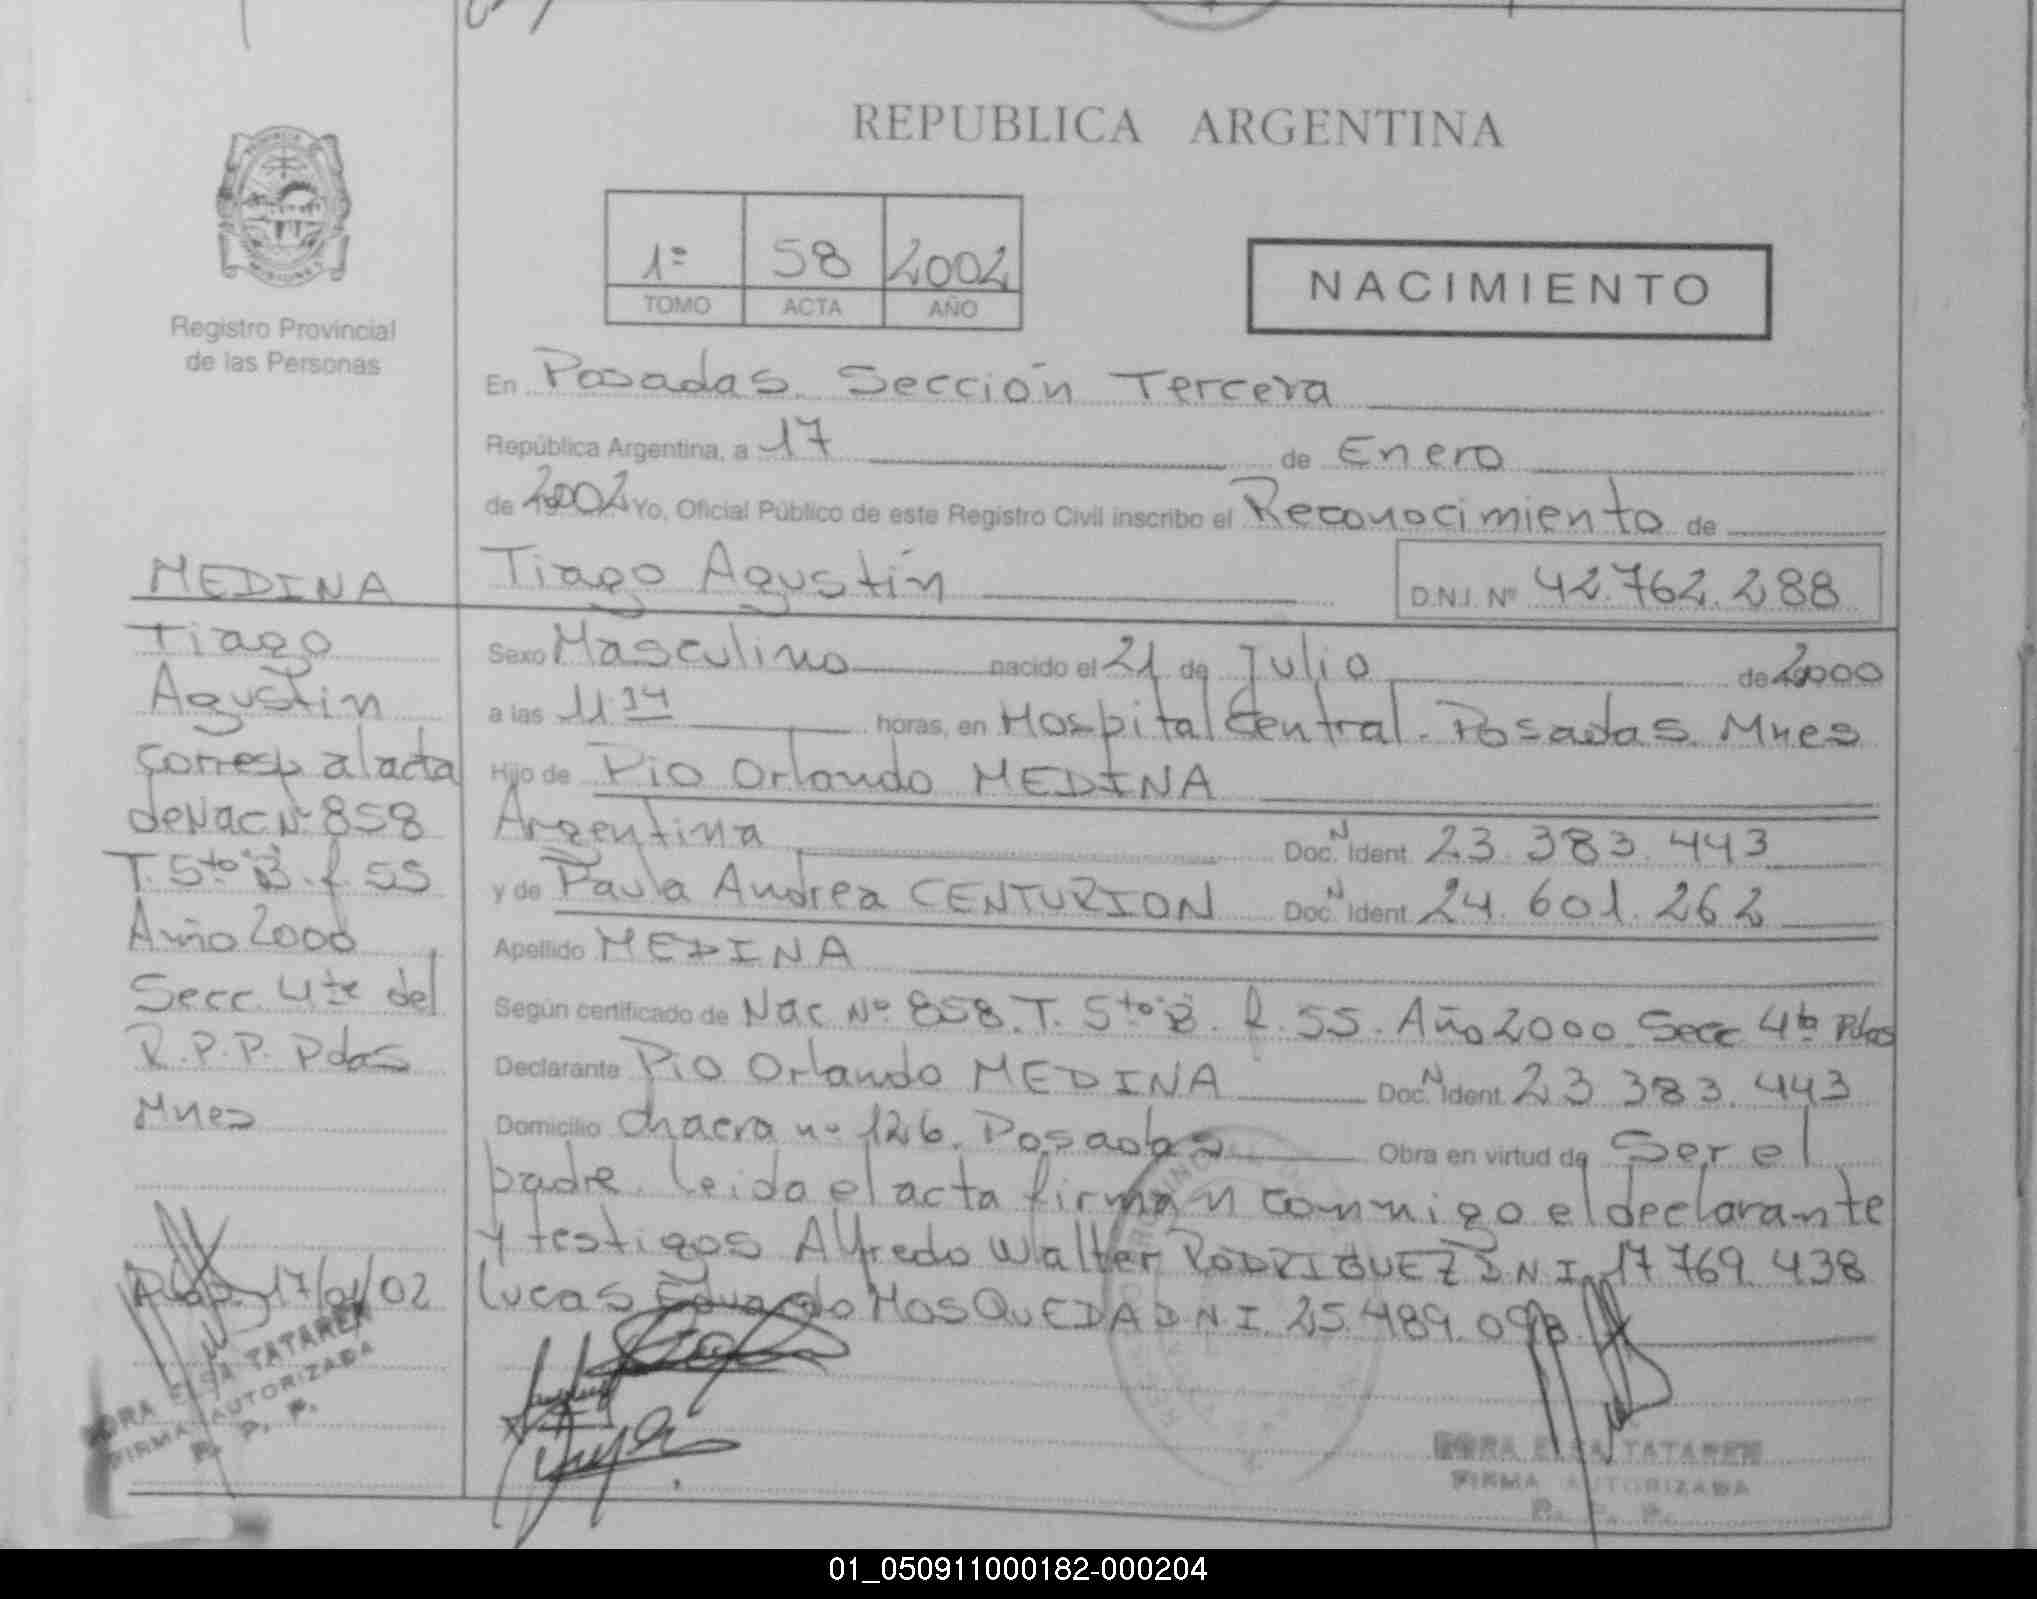 REPUBLICA ARGENTINA
1º 58 2002
TOMO ACTA AÑO
NACIMIENTO
Registro Provincial
de las Personas
En Posadas. Sección Tercera
República Argentina, a 17 de Enero
de 2002 Yo, Oficial Público de este Registro Civil inscribo el Reconocimiento de
Tiago Agustín D.N.I. Nº 42.762.288
Sexo Masculino nacido el 21 de Julio de 2000
a las 11 34 horas, en Hospital Central. Posadas. Mnes
Hijo de Pio Orlando MEDINA
Argentina Doc. N Ident 23.383.443
y de Paula Andrea CENTURION Doc. N Ident 24.601.262
Apellido MEDINA
Según certificado de Nac Nº 858. T. 5to "B". f. 55. Año 2000. Secc 4ta Pdas
Declarante Pio Orlando MEDINA Doc. N Ident 23 383.443
Domicilio Chacra nº 126. Posadas Obra en virtud de Ser el
padre. Leida el acta firman conmigo el declarante
y testigos Alfredo Walter RODRIGUEZ DNI 17 769 438
Lucas Eduardo MOSQUEDA DNI. 25.489.098.
MEDINA
Tiago
Agustin
Corresp al acta
de Nac Nº 858
T. 5to "B" f. 55
Año 2000
Secc. 4ta del
R.P.P. Pdas
Mnes
17/01/02
ELSA TATAREN
FIRMA AUTORIZADA
R. P. P.
ELSA TATAREN
FIRMA AUTORIZADA
R. P. P.
01_050911000182-000204